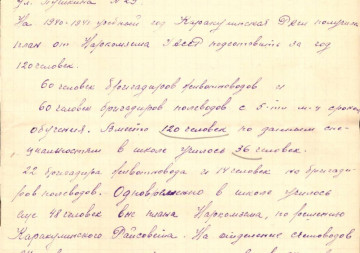 ул. Пушкина № 29.
На 1940-1941 учебный год Каракулинская получила
план от Наркомзема подготовить за год
120 человек.
60 человек бригадиров животноводов и
60 человек бригадиров полеводов с 5-ти м-ч сроком
обучения. Вместо 120 человек по данным спе-
циальностям в школе училось 36 человек.
22 бригадира животновода и 14 человек по бригади-
ров полеводов. Одновременно в школе училось
еще 48 человек вне плана Наркомзема, по решению
Каракулинского Райсовета. На отделение счетоводов